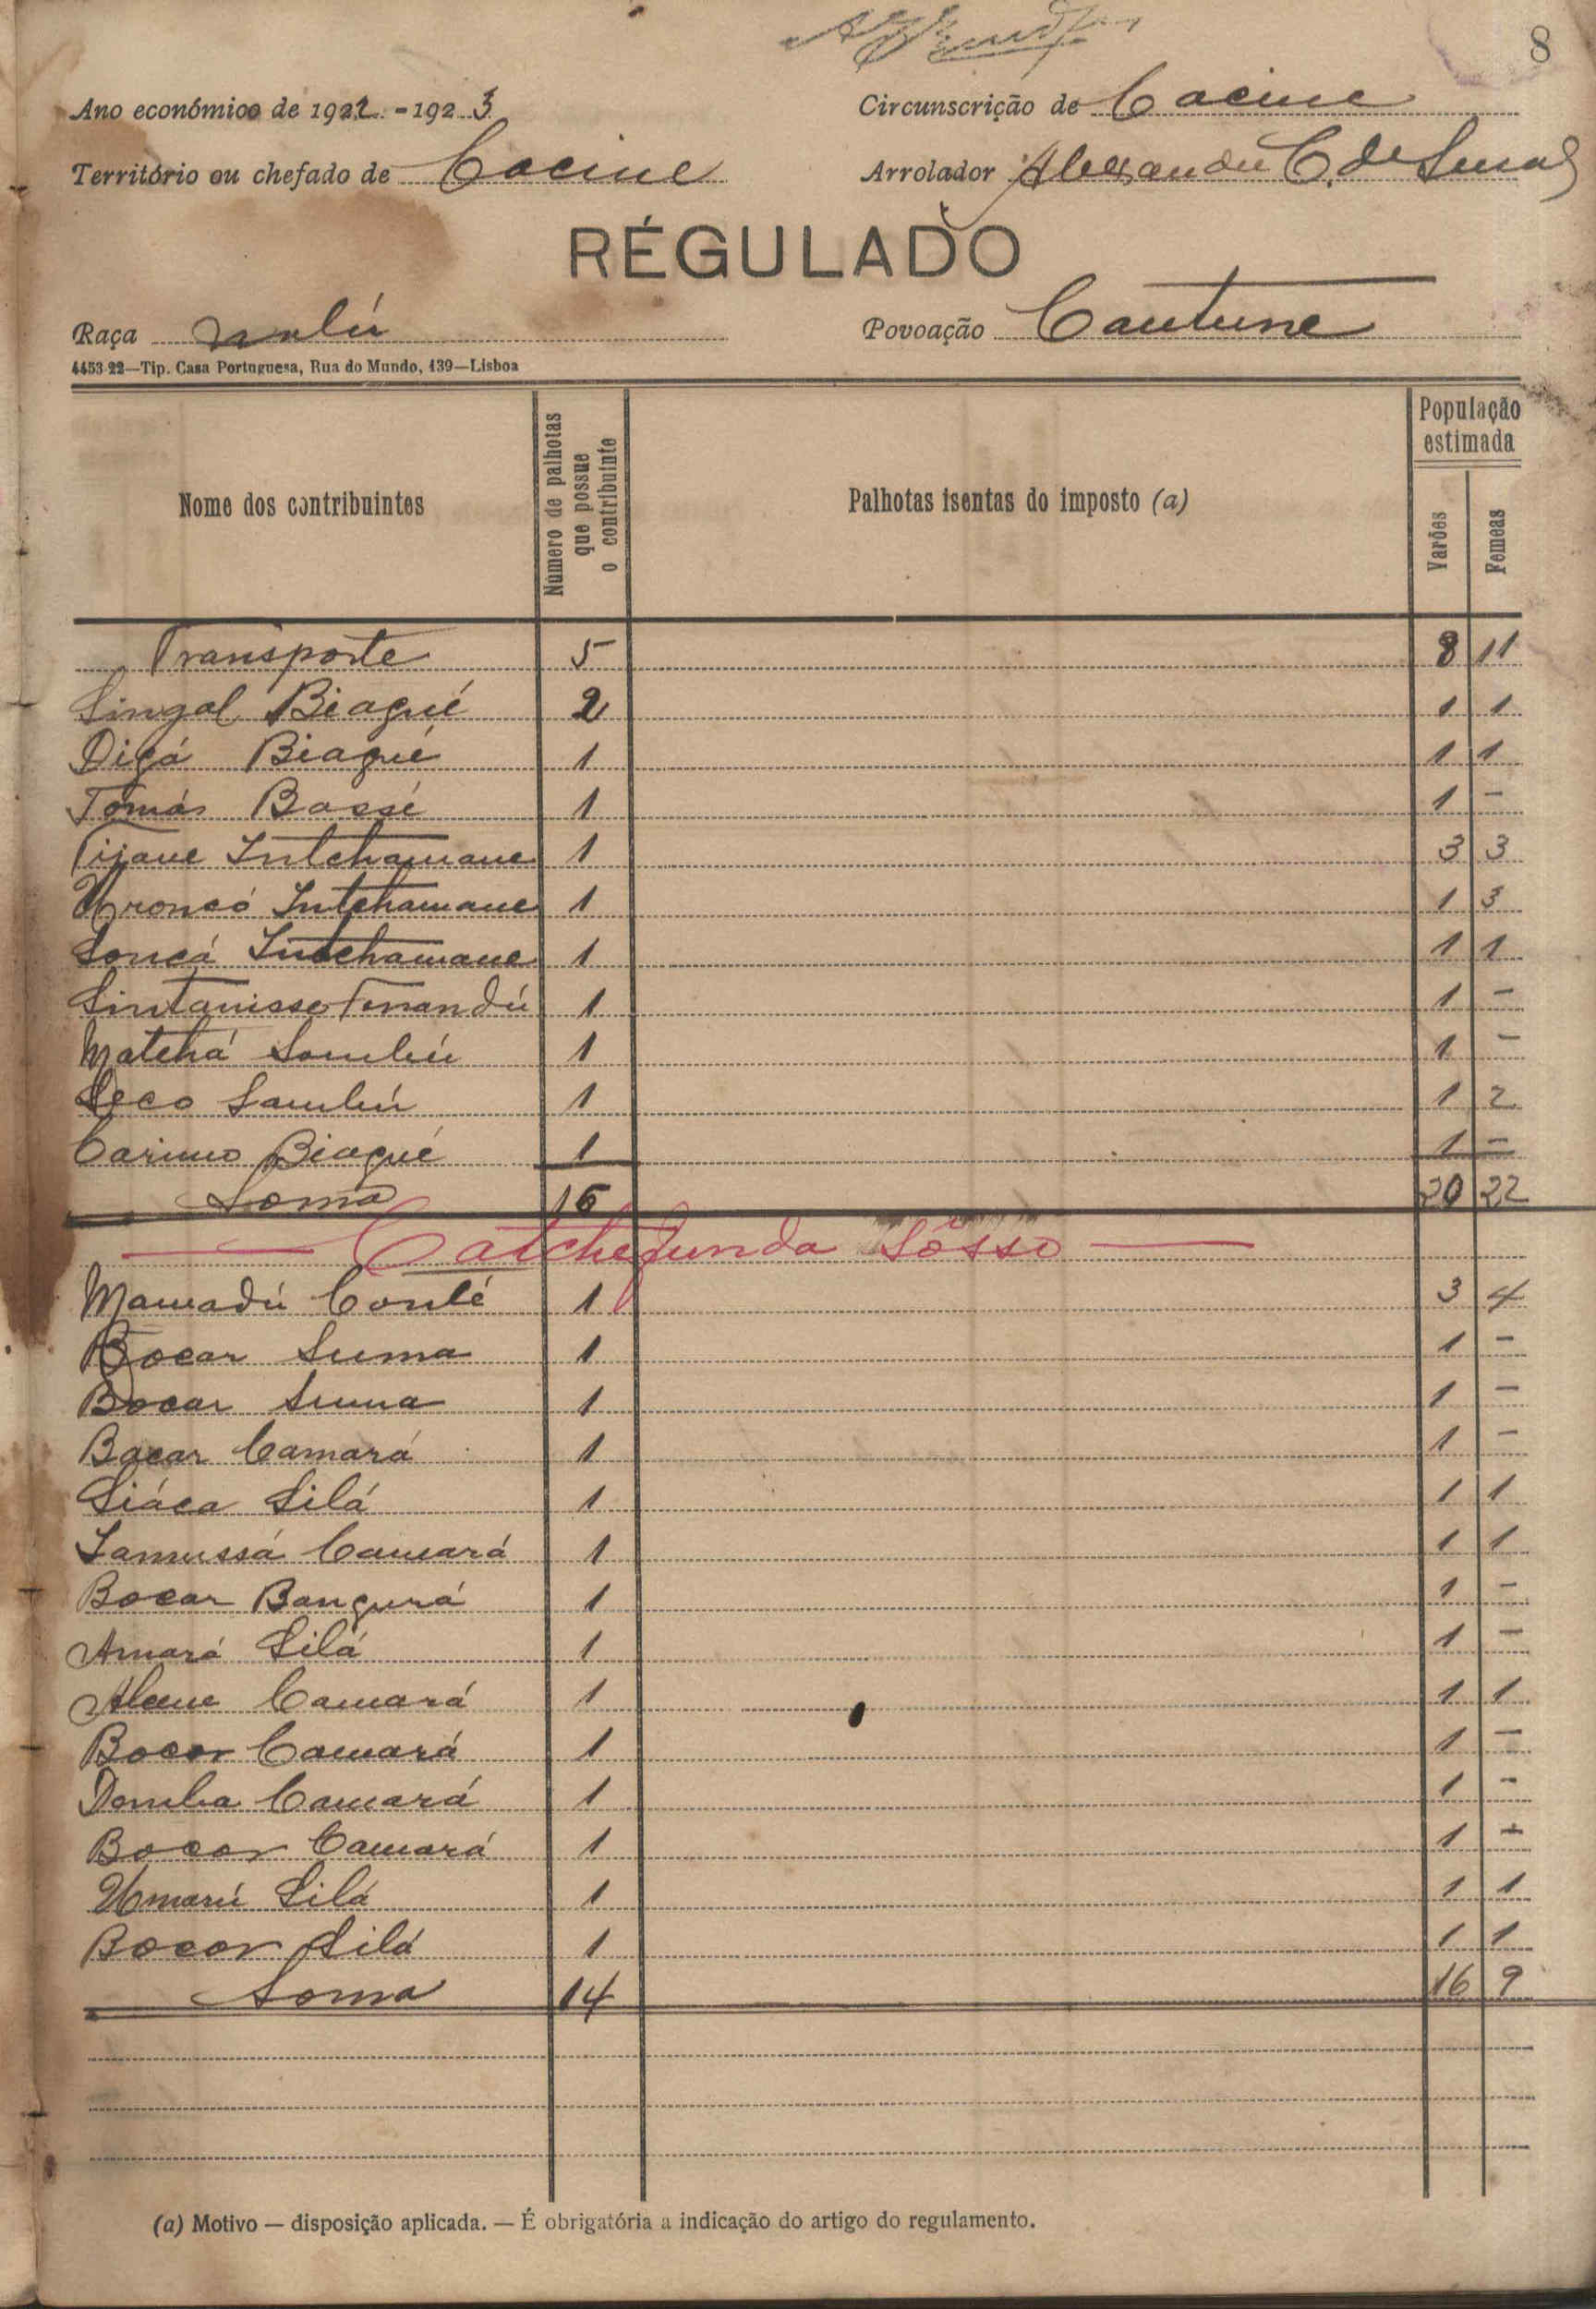 8
Ano económico de 1922 - 1923 Circunscrição de Cacine
Território ou chefado de Cacine Arrolador C. de
RÉGULADO
Raça nalú Povoação Cantune
4453-22—Tip. Casa Portuguesa, Rua do Mundo, 139—Lisboa
Nome dos contribuintes Número de palhotas que possue o contribuinte Palhotas isentas do imposto (a) População estimada Varões Femeas
Transporte 5 8 11
Singal Biagué 2 1 1
Digá Biagué 1 1 1
Tomás Bassé 1 1 -
Tijane Intchamane 1 3 3
Uroncó Intchamane 1 1 3
Soncá Intchamane 1 1 1
Sintanisso 1 1 -
Matchá Sambú 1 1 -
Seco Sambú 1 1 2
Carimo Biagué 1 1 -
Soma 16 20 22
Catchefunda Sôsso
Mamadú Conté 1 3 4
Bocar Suma 1 1 -
Bocar Suma 1 1 -
Bacar Camará 1 1 -
Siáca Silá 1 1 1
Lamussá Camará 1 1 1
Bocar Bangurá 1 1 -
Amará Silá 1 1 -
Camará 1 1 1
Bocar Camará 1 1 -
Demba Camará 1 1 -
Bocar Camará 1 1 -
Umarú Silá 1 1 1
Bocar Silá 1 1 1
Soma 14 16 9
(a) Motivo — disposição aplicada. — É obrigatória a indicação do artigo do regulamento.